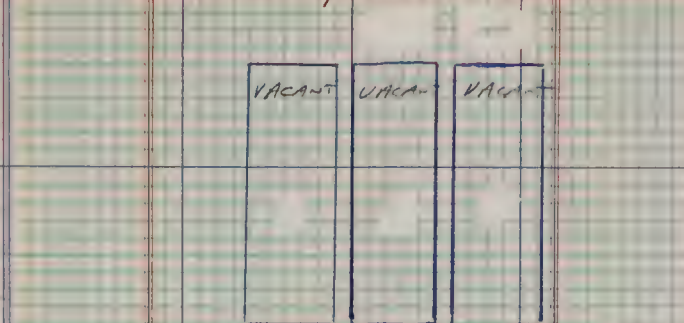 VACANT VACANT VACANT